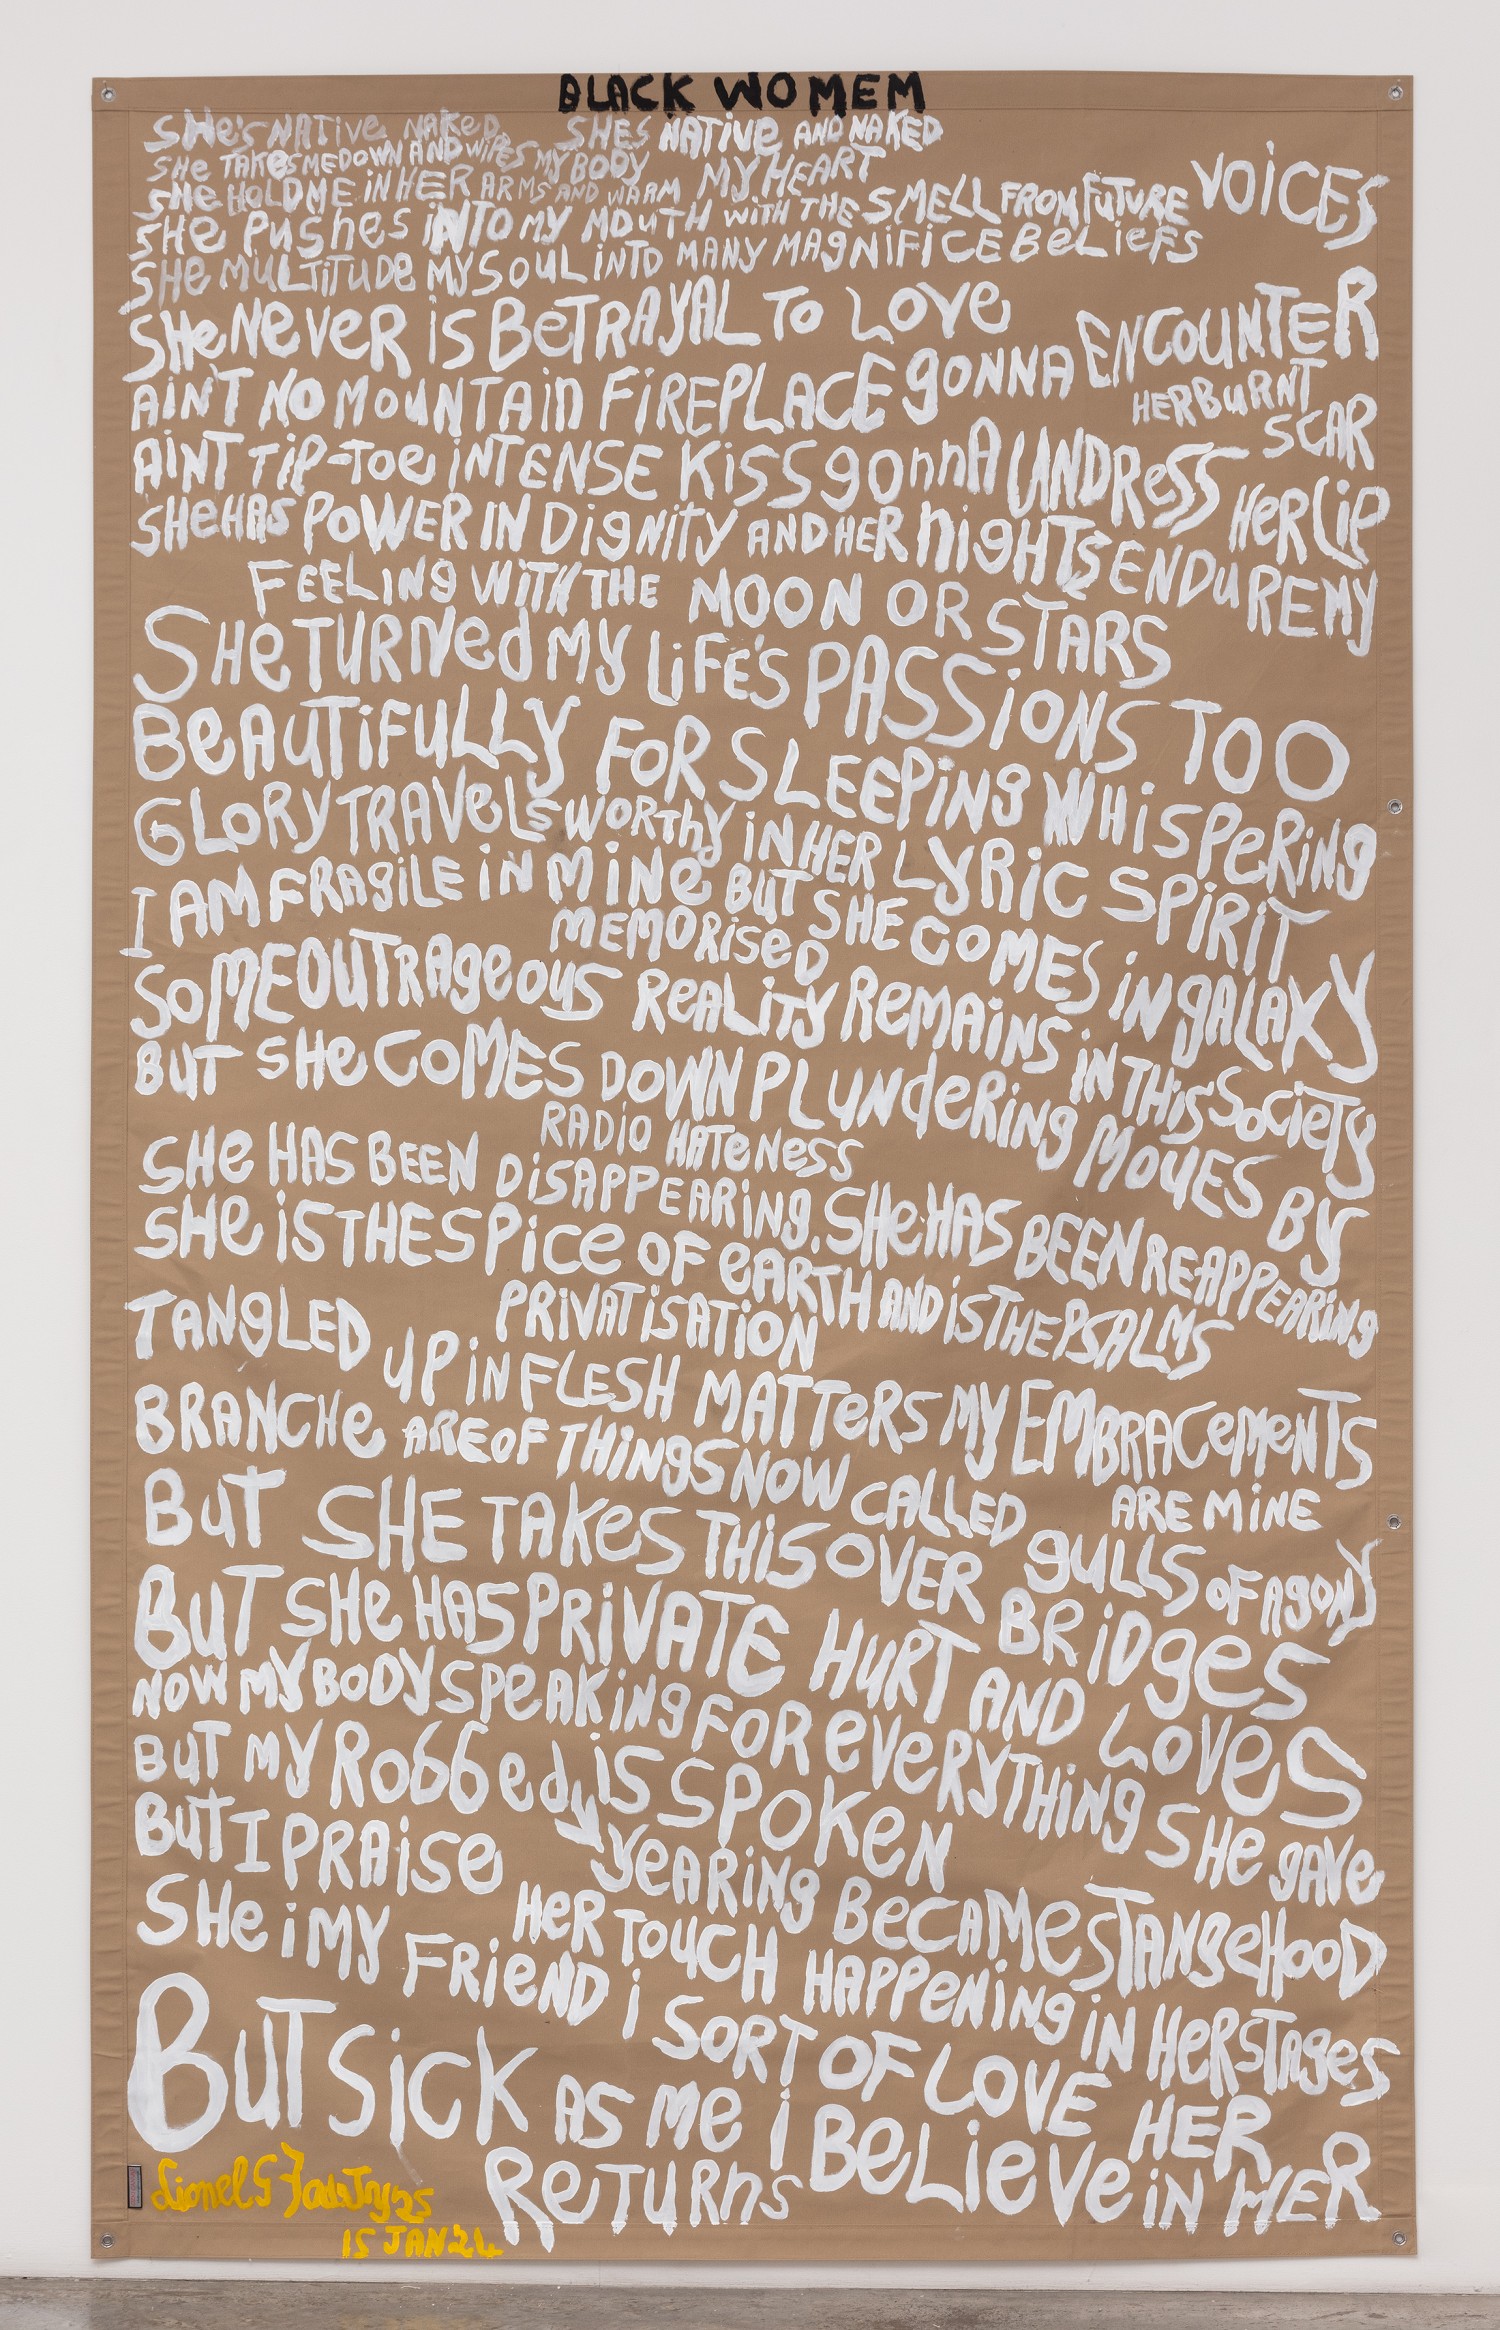 BLACK WOMEM
SHE'S NATIVE NAKED. SHES NATIVE AND NAKED
SHE TAKES ME DOWN AND WIPES MY BODY MY HEART
SHE HOLD ME IN HER ARMS AND WARM
SHE PUSHES INTO MY MOUTH WITH THE SMELL FROM FUTURE VOICES
SHE MULTITUDE MY SOUL INTO MANY MAGNIFICE BELIEFS
SHE NEVER IS BETRAYAL TO LOVE
AIN'T NO MOUNTAIN FIREPLACE GONNA ENCOUNTER
HER BURNT
SCAR
AINT TIP-TOE INTENSE KISS GONNA UNDRESS HER LIP
SHE HAS POWER IN DIGNITY AND HER NIGHTS ENDURE MY
FEELING WITH THE MOON OR STARS
SHE TURNED MY LIFE'S PASSIONS TOO
BEAUTIFULLY FOR SLEEPING WHISPERING
GLORY TRAVELS WORTHY IN HER LYRIC SPIRIT
I AM FRAGILE IN MINE BUT SHE COMES IN GALAXY
MEMORISED
SOME OUTRAGEOUS REALITY REMAINS IN THIS SOCIETY
BUT SHE COMES DOWN PLUNDERING MOVES BY
RADIO HATENESS
SHE HAS BEEN DISAPPEARING. SHE HAS BEEN REAPPEARING
SHE IS THE SPICE OF EARTH AND IS THE PSALMS
PRIVATISATION
TANGLED UP IN FLESH MATTERS MY EMBRACEMENTS
ARE MINE
BRANCHE ARE OF THINGS NOW CALLED GULLS OF AGONY
BUT SHE TAKES THIS OVER BRIDGES
BUT SHE HAS PRIVATE HURT AND LOVES
NOW MY BODY SPEAKING FOR EVERYTHING SHE GAVE
BUT MY ROBBED IS SPOKEN
YEARING BECAME STANGEHOOD
BUT I PRAISE HER TOUCH HAPPENING IN HER STAGES
SHE IMY FRIEND I SORT OF LOVE HER
BUT SICK AS ME I BELIEVE IN HER
RETURNS
15 JAN 24